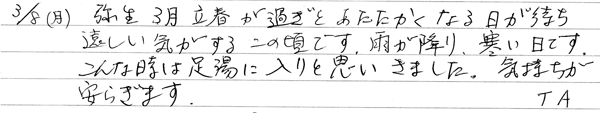 3/8(月) 弥生 3月 立春が過ぎとあたたかくなる日が待ち
遠しい気がするこの頃です. 雨が降り、寒い日です.
こんな時は足湯に入りと思いきました。気持ちが
安らぎます.
TA